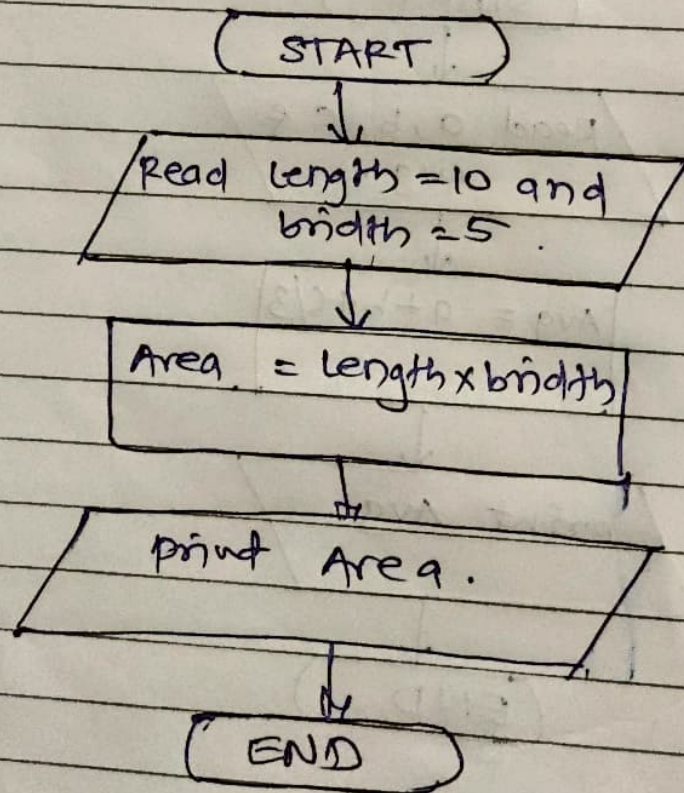 START
Read length = 10 and
bridth = 5.
Area = length x bridth
print Area.
END